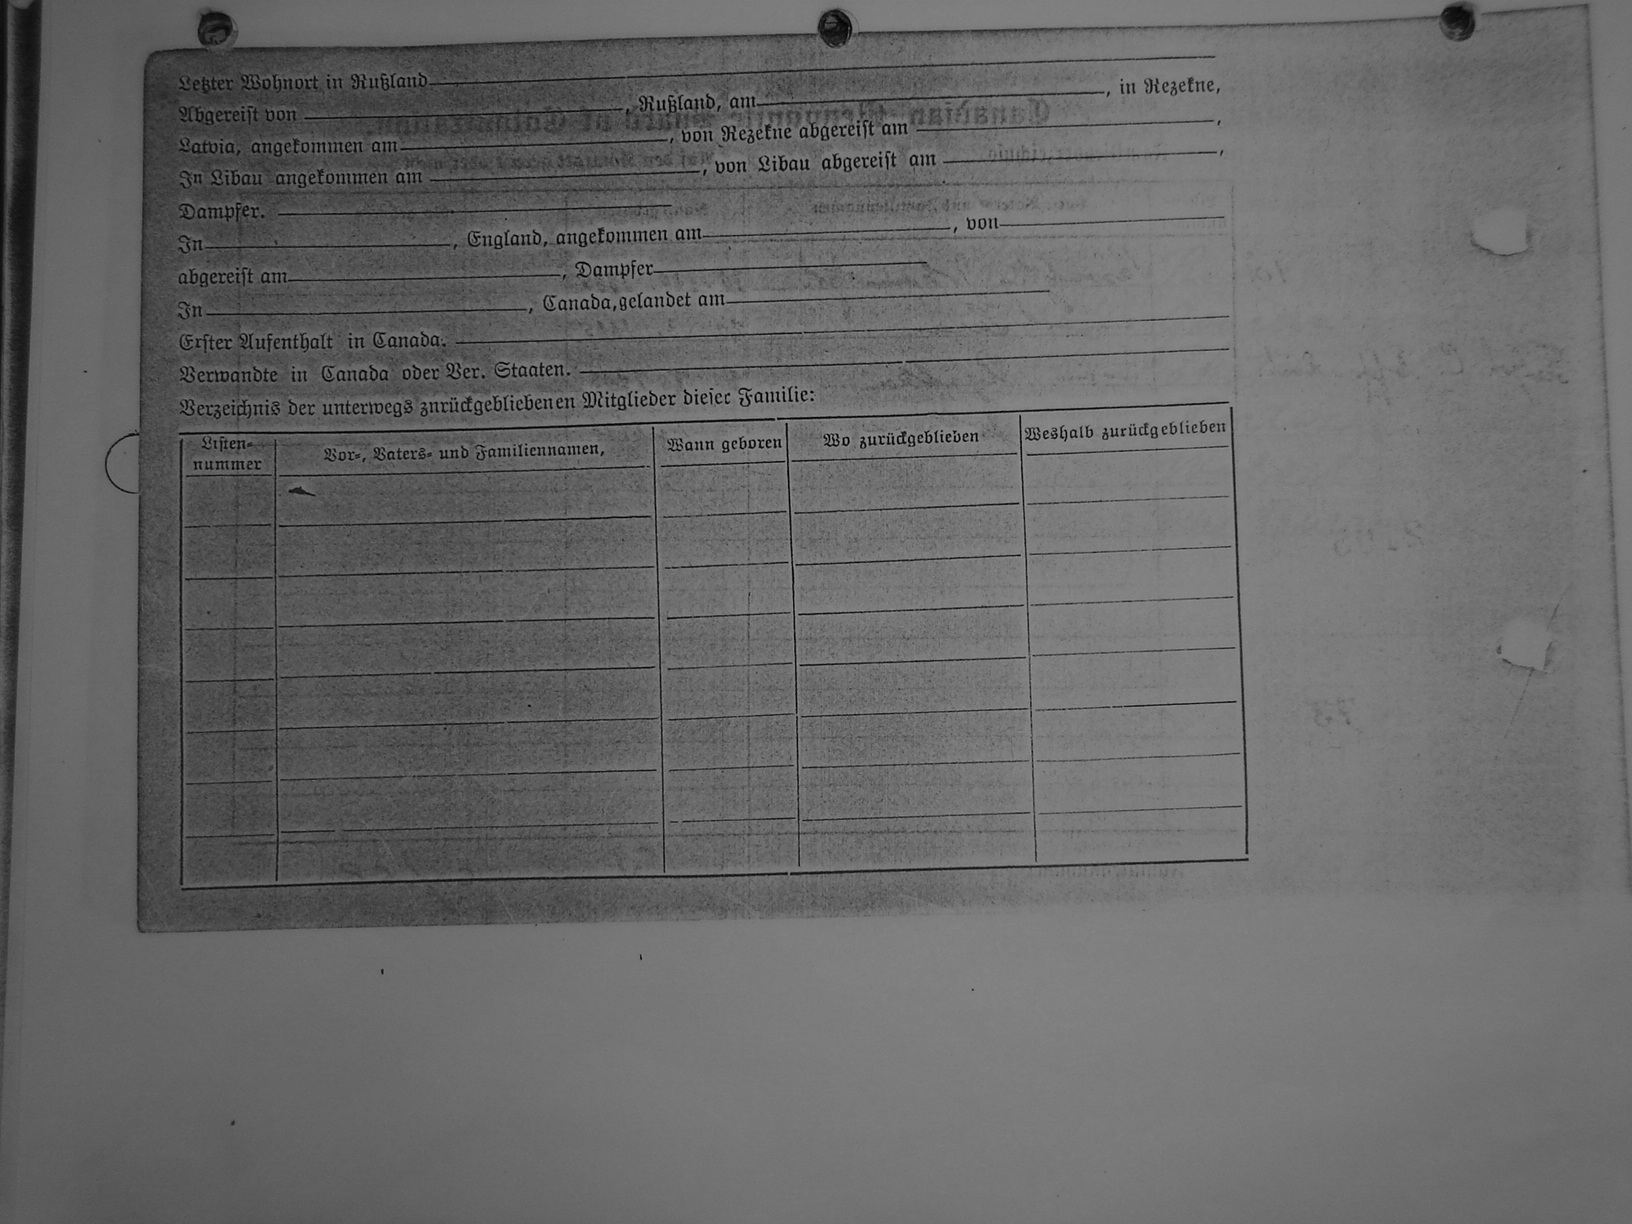 Letzter Wohnort in Rußland
Abgereist von , Rußland, am , in Rezekne,
Latvia, angekommen am , von Rezekne abgereist am ,
In Libau angekommen am , von Libau abgereist am ,
Dampfer.
In , England, angekommen am , von
abgereist am , Dampfer
In , Canada, gelandet am
Erster Aufenthalt in Canada.
Verwandte in Canada oder Ver. Staaten.
Verzeichnis der unterwegs zurückgebliebenen Mitglieder dieser Familie:
Listen-nummer Vor-, Vaters- und Familiennamen, Wann geboren Wo zurückgeblieben Weshalb zurückgeblieben
Canadian Mennonite Board of Colonization.